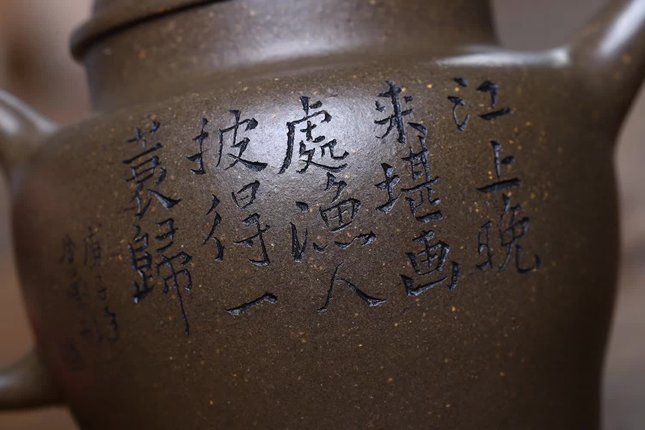 江上晚
来堪画
處漁人
披得一
蓑歸